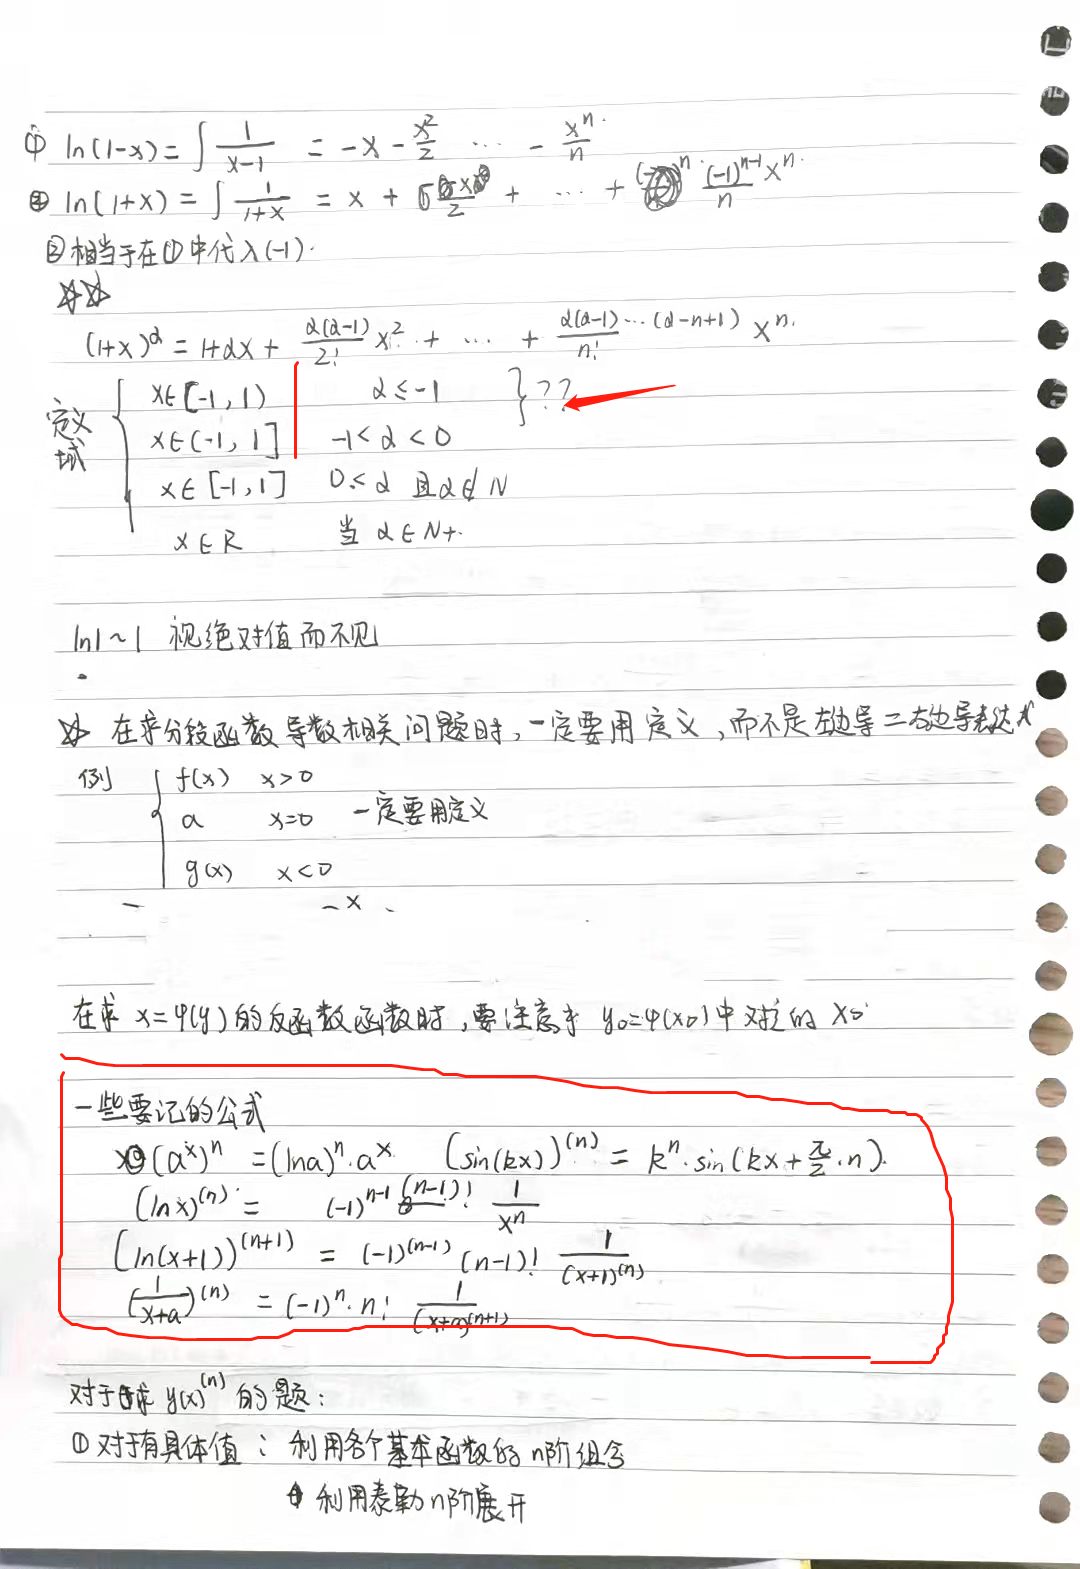 ① ln(1-x) = ∫ 1/(x-1) = -x - x²/2 ... - xⁿ/n.
② ln(1+x) = ∫ 1/(1+x) = x + + ... + (-1)ⁿ⁻¹/n xⁿ.
②相当于在①中代入(-1).
☆☆
(1+x)^α = 1+αx + α(α-1)/2! x² + ... + α(α-1)...(α-n+1)/n! xⁿ.
定义域
x∈[-1,1) α≤-1 } ??
x∈(-1,1] -1<α<0
x∈[-1,1] 0<α 且α∉N
x∈R 当 α∈N+.
ln| ~ | 视绝对值而不见
☆ 在求分段函数导数相关问题时,一定要用定义,而不是左边导=右边导表达式
例 { f(x) x>0
a x=0 一定要用定义
g(x) x<0
-x
在求 x=φ(y)的反函数函数时,要注意 y₀=φ(x₀)中对应的 x₀
一些要记的公式
(aˣ)ⁿ = (lna)ⁿ·aˣ (sin(kx))⁽ⁿ⁾ = kⁿ·sin(kx+π/2·n).
(lnx)⁽ⁿ⁾ = (-1)ⁿ⁻¹ (n-1)! 1/xⁿ
(ln(x+1))⁽ⁿ⁺¹⁾ = (-1)⁽ⁿ⁻¹⁾ (n-1)! 1/(x+1)⁽ⁿ⁾
(1/(x+a))⁽ⁿ⁾ = (-1)ⁿ·n! 1/(x+a)⁽ⁿ⁺¹⁾
对于求 y(x)⁽ⁿ⁾的题:
①对于有具体值:利用各个基本函数的n阶组合
利用泰勒n阶展开